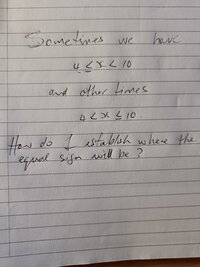 Sometimes we have
4 ≤ x < 10
and other times
4 < x ≤ 10
How do I establish where the
equal sign will be ?